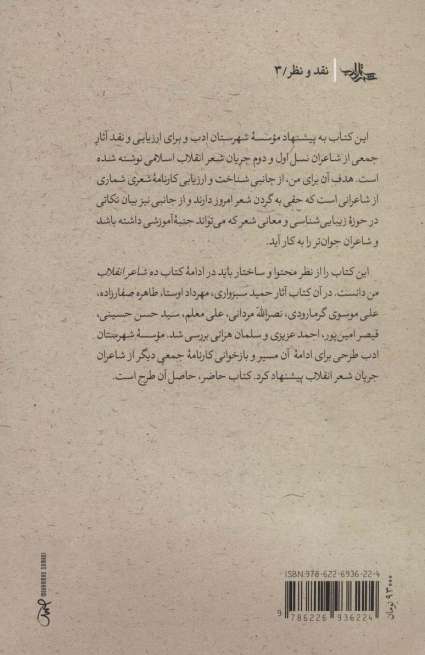 شهرستان ادب | نقد و نظر/۳
این کتاب به پیشنهاد مؤسسهٔ شهرستان ادب و برای ارزیابی و نقد آثار
جمعی از شاعران نسل اول و دوم جریان شعر انقلاب اسلامی نوشته شده
است. هدف آن برای من، از جانبی شناخت و ارزیابی کارنامهٔ شعری شماری
از شاعرانی است که حقی به گردن شعر امروز دارند و از جانبی نیز بیان نکاتی
در حوزهٔ زیبایی‌شناسی و معانی شعر که می‌تواند جنبهٔ آموزشی داشته باشد
و شاعران جوان‌تر را به کار آید.
این کتاب را از نظر محتوا و ساختار باید در ادامهٔ کتاب ده شاعر انقلاب
من دانست. در آن کتاب آثار حمید سبزواری، مهرداد اوستا، طاهره صفارزاده،
علی موسوی گرمارودی، نصرالله مردانی، علی معلم، سید حسن حسینی،
قیصر امین‌پور، احمد عزیزی و سلمان هراتی بررسی شد. مؤسسهٔ شهرستان
ادب طرحی برای ادامهٔ آن مسیر و بازخوانی کارنامهٔ جمعی دیگر از شاعران
جریان شعر انقلاب پیشنهاد کرد. کتاب حاضر، حاصل آن طرح است.
ISBN:978-622-6936-22-4
9 786226 936224
۹۳۰۰۰ تومان